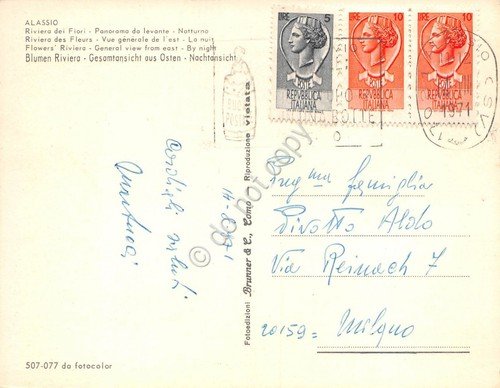 ALASSIO
Riviera dei Fiori - Panorama da levante - Notturno
Riviera des Fleurs - Vue générale de l'est - La nuit
Flowers' Riviera - General view from east - By night
Blumen Riviera - Gesamtansicht aus Osten - Nachtansicht
LIRE 5
POSTE
REPUBBLICA
ITALIANA
LIRE 10
POSTE
REPUBBLICA
ITALIANA
LIRE 10
POSTE
REPUBBLICA
ITALIANA
1971
Cordiali saluti
Fotoedizioni Brunner & C., Como - Riproduzione vietata
Preg.ma famiglia
Pivotto Aldo
Via Reinach 7
20159 = Milano
507-077 da fotocolor